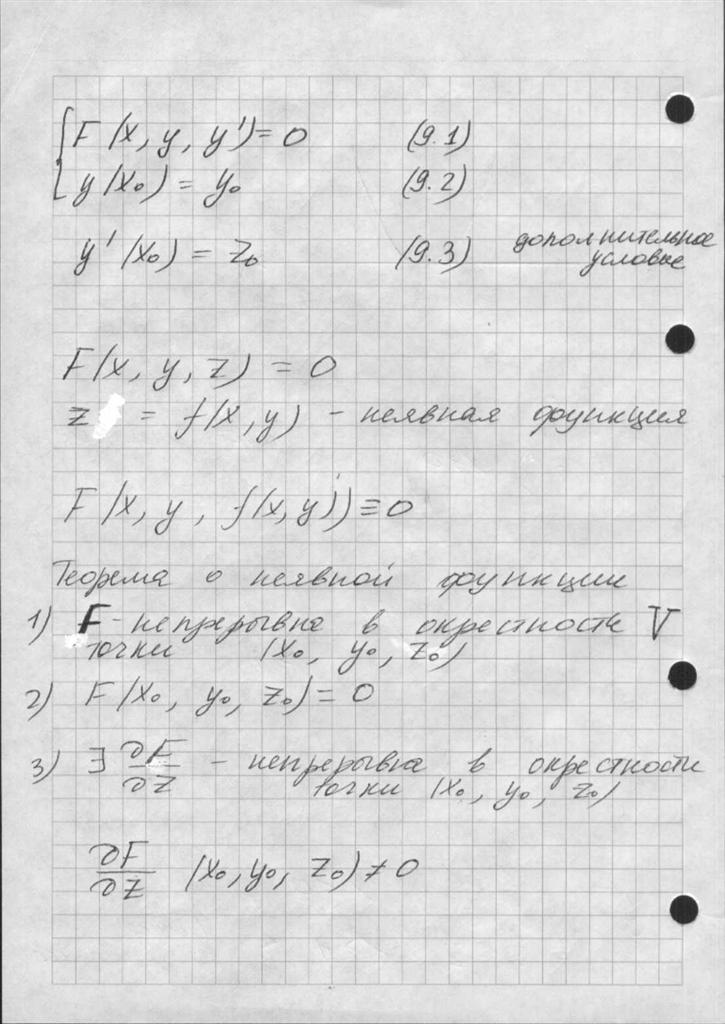 F(x, y, y') = 0 (9.1)
y(x₀) = y₀ (9.2)
y'(x₀) = z₀ (9.3) дополнительное
условие
F(x, y, z) = 0
z = f(x, y) - неявная функция
F(x, y, f(x, y)) ≡ 0
Теорема о неявной функции
1) F - непрерывна в окрестности V
точки (x₀, y₀, z₀)
2) F(x₀, y₀, z₀) = 0
3) ∃ ∂F/∂z - непрерывна в окрестности
точки (x₀, y₀, z₀)
∂F/∂z (x₀, y₀, z₀) ≠ 0